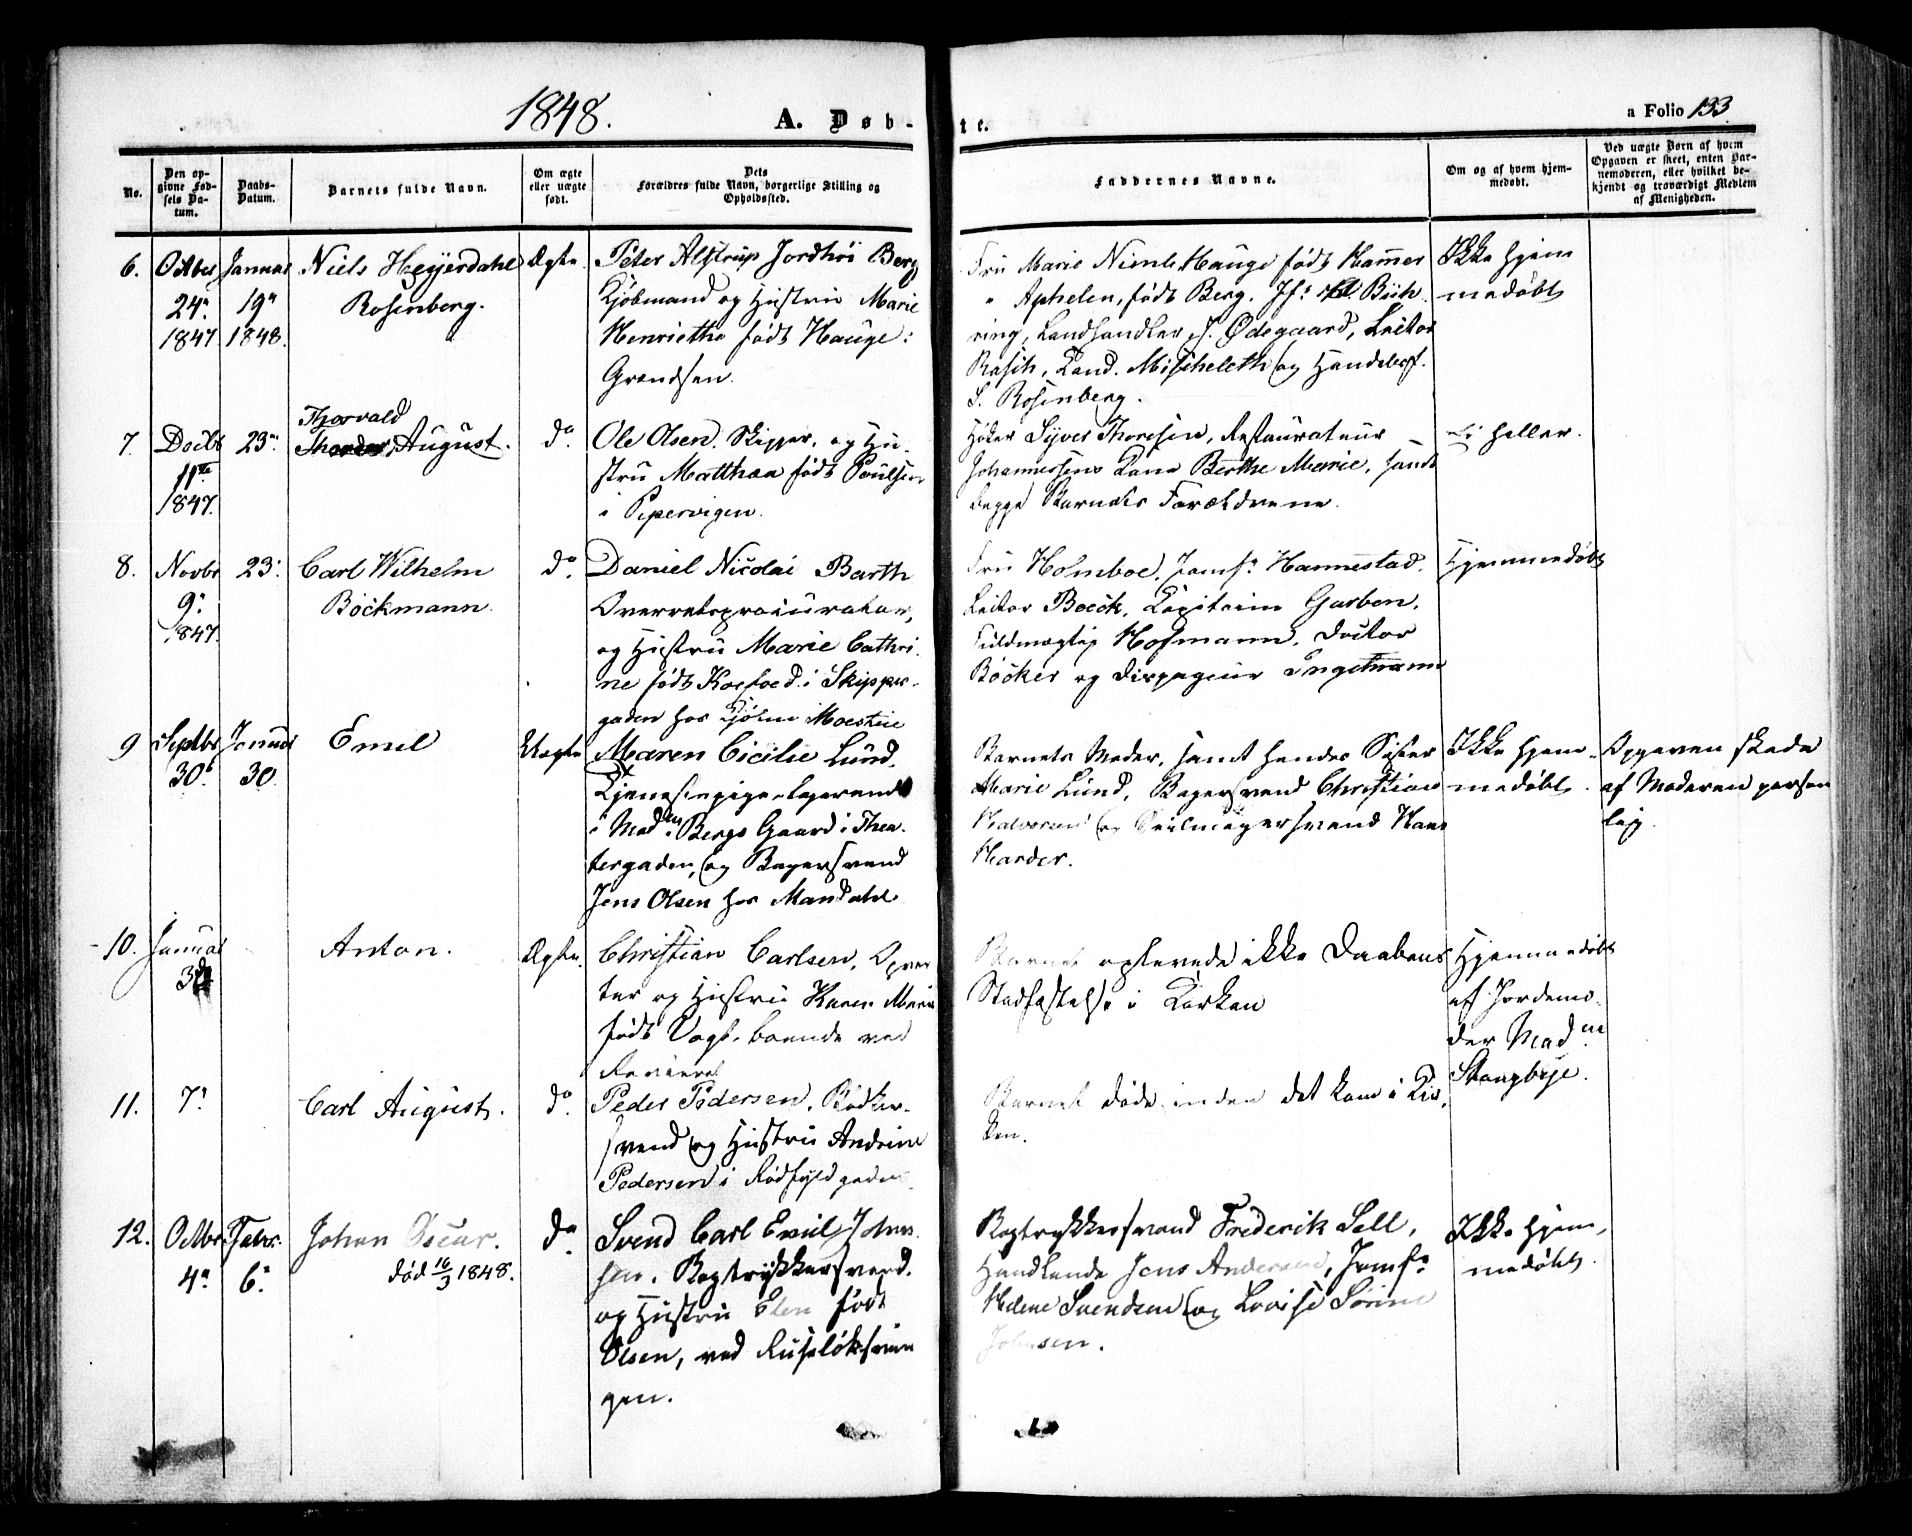 1848.
A. Døb-
te.
a Folio 133.
No.
Den op-
givne Fød-
sels Da-
tum.
Daabs-
Datum.
Barnets fulde Navn.
Om ægte
eller uægte
født.
Dets
Forældres fulde Navn, borgerlige Stilling og
Opholdssted.
Faddernes Navne.
Om og af hvem hjem-
medøbt.
Ved uægte Børn af hvem
Opgaven er skeet, enten Bar-
nemoderen, eller hvilket be-
kjendt og troværdigt Medlem
af Menigheden.
6.
Octbr
24de
1847
Januar
19de
1848.
Niels Heyerdahl
Rosenberg.
Ægte.
Peter Alstrup Jordhöi Berg
Kjöbmand og Hustru Marie
Henriethe født Hauge:
Grændsen.
Fru Marie Hauge født Hammer
" Aphelen, født Berg. Jfr Büh
ring, Landhandler Ødegaard, Lector
Rasch, Cand. Mischeleth og Handelsf.
S. Rosenberg.
Ikke hjem
medøbt
7.
Decbr
11te
1847.
23de
Thorvald
August.
do
Ole Olsen, Skipper, og Hu-
stru Matthea født Poulsen
i Pipervigen.
Høker Syver Thoresen, Restaurateur
Johannessens Kone Berthe Marie, samt
begge Barnets Forældrene.
Ei heller.
8.
Novbr
9de
1847.
23de
Carl Wilhelm
Böckmann.
do.
Daniel Nicolai Barth
Overretsprocurator,
og Hustru Marie Cathri-
ne født Koefoed i Skipper-
gaden hos Moestue
Fru Holmboe, Jomfr Hannestad.
Lector Boeck, Capitain Garben,
Fuldmægtig Hofmann, Doctor
Böcker og Dispageur Engelmann
Hjemmedøbt
9
Septbr
30te
Januar
30.
Emil
Uægte
Maren Cicilie Lund,
Tjenestepige logerende
i Madm Bergs Gaard i Thea-
tergaden, og Bagersvend
Jens Olsen hos Mandahl
Barnets Moder, samt hendes Sister
Marie Lund, Bagersvend Christian
Halvorsen og Seilmagersvend Hans
Harder.
Ikke hjem-
medøbt.
Opgaven skede
af Moderen person
lig.
10.
Januar
Anton.
Ægte.
Christian Carlsen, Oppas
ter og Hustru Karen Marie
født Vogt, boende ved
Revieret
Barnet oplevede ikke Daabens
Stadfæstelse i Kirken
Hjemmedøbt
af Jordemo-
der Madm
Stangbye.
11.
7de
Carl August.
do.
Peder Pedersen, Bødker-
svend og Hustru Andrine
Pedersen i Rødfyldgaden
Barnet døde inden det kom i Kir-
ken.
12.
Octbr.
4de
Febr.
6te
Johan Oscar.
død 16/3 1848.
do.
Svend Carl Emil John
sen, Bogtrykkersvend,
og Hustru Elen født
Olsen, ved Ruseløksvin
gen.
Bogtrykkersvend Frederik Sell,
Handlende Jens Andersen, Jomfr
Helene Svendsen og Lovise Sörine
Johnsen.
Ikke hjem-
medøbt.